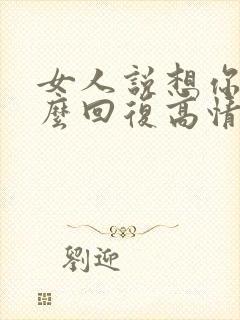 女人說想你
麼回復高情
劉迎